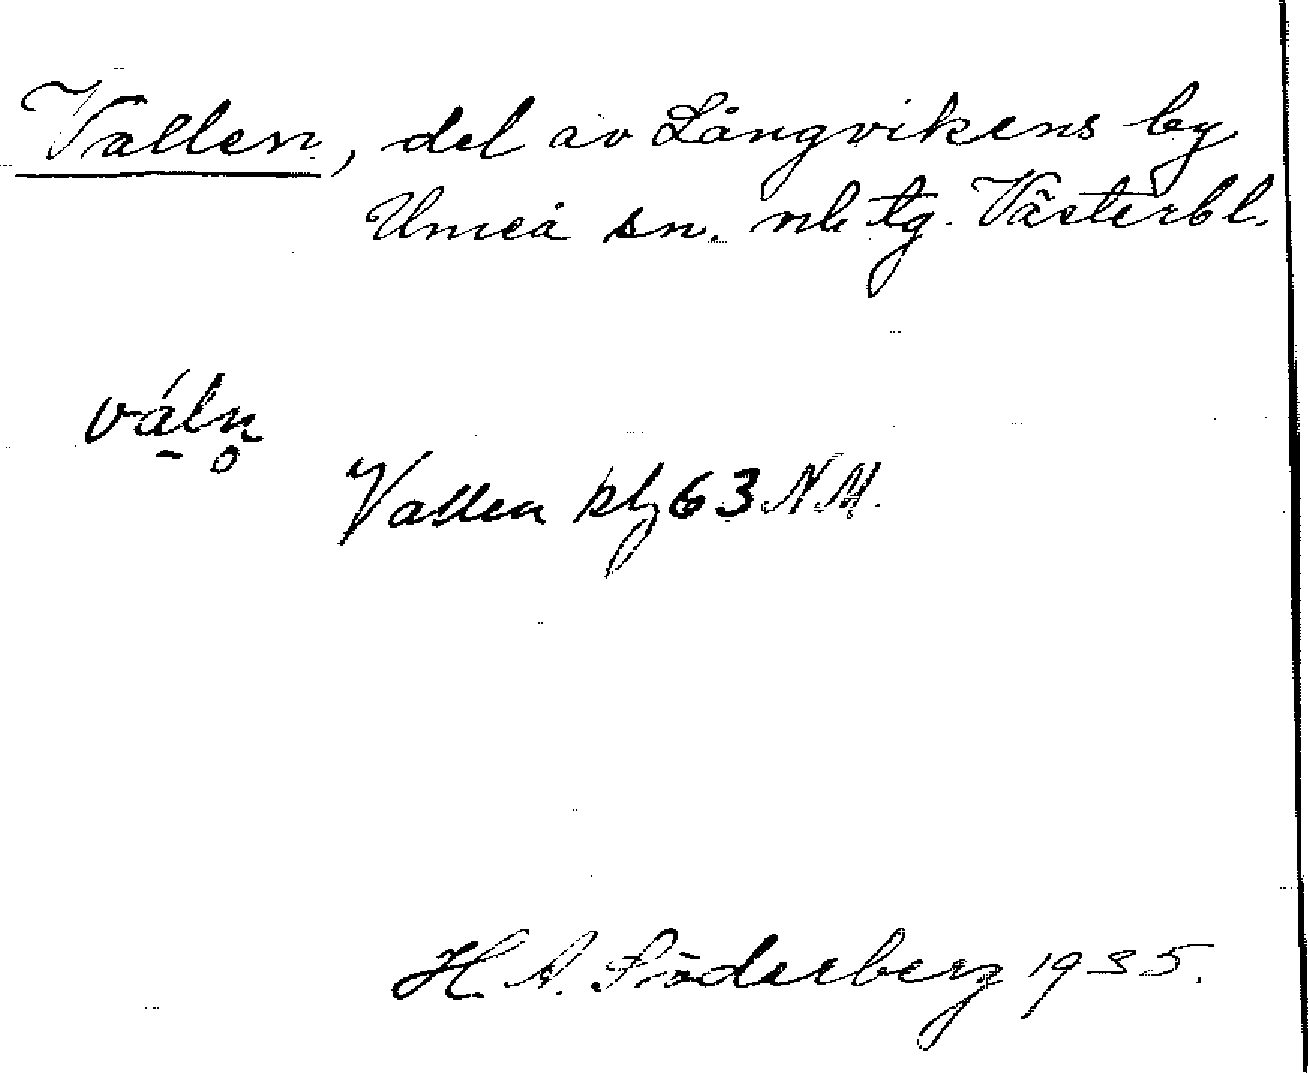 Vallen, del av Långvikens by
Umeå sn. nb tg. Västerbl.
váln̥
Vallen kbl 63 N.M.
H. A. Söderberg 1935.